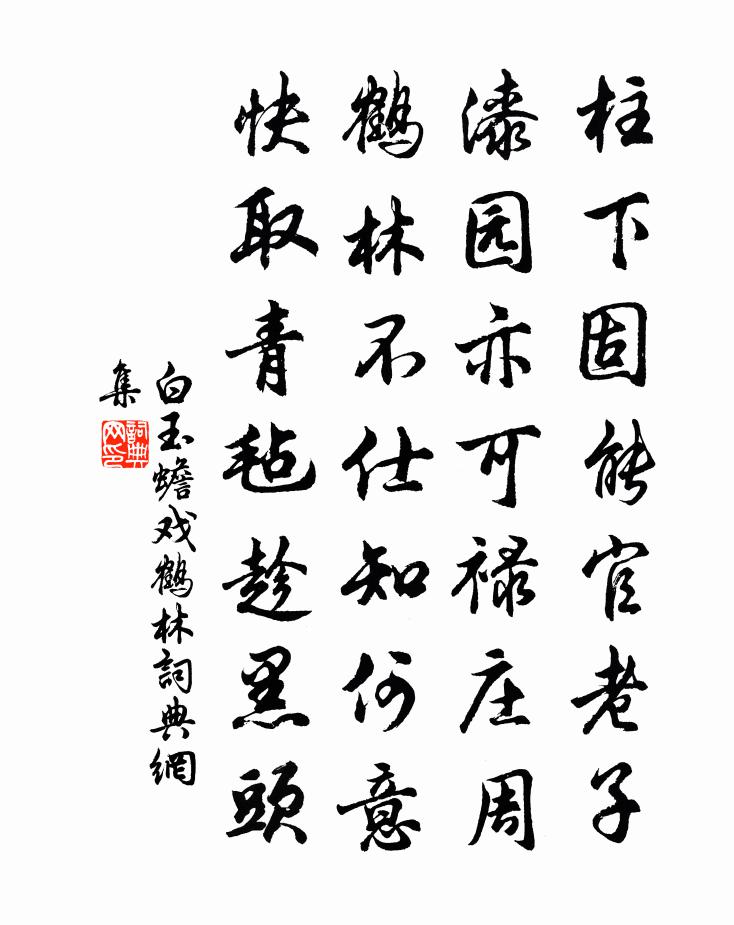 柱下固能官老子
漆园亦可禄庄周
鹤林不仕知何意
快取青毡趁黑頭
白玉蟾戏鹤林詞典網
集
詞典网印